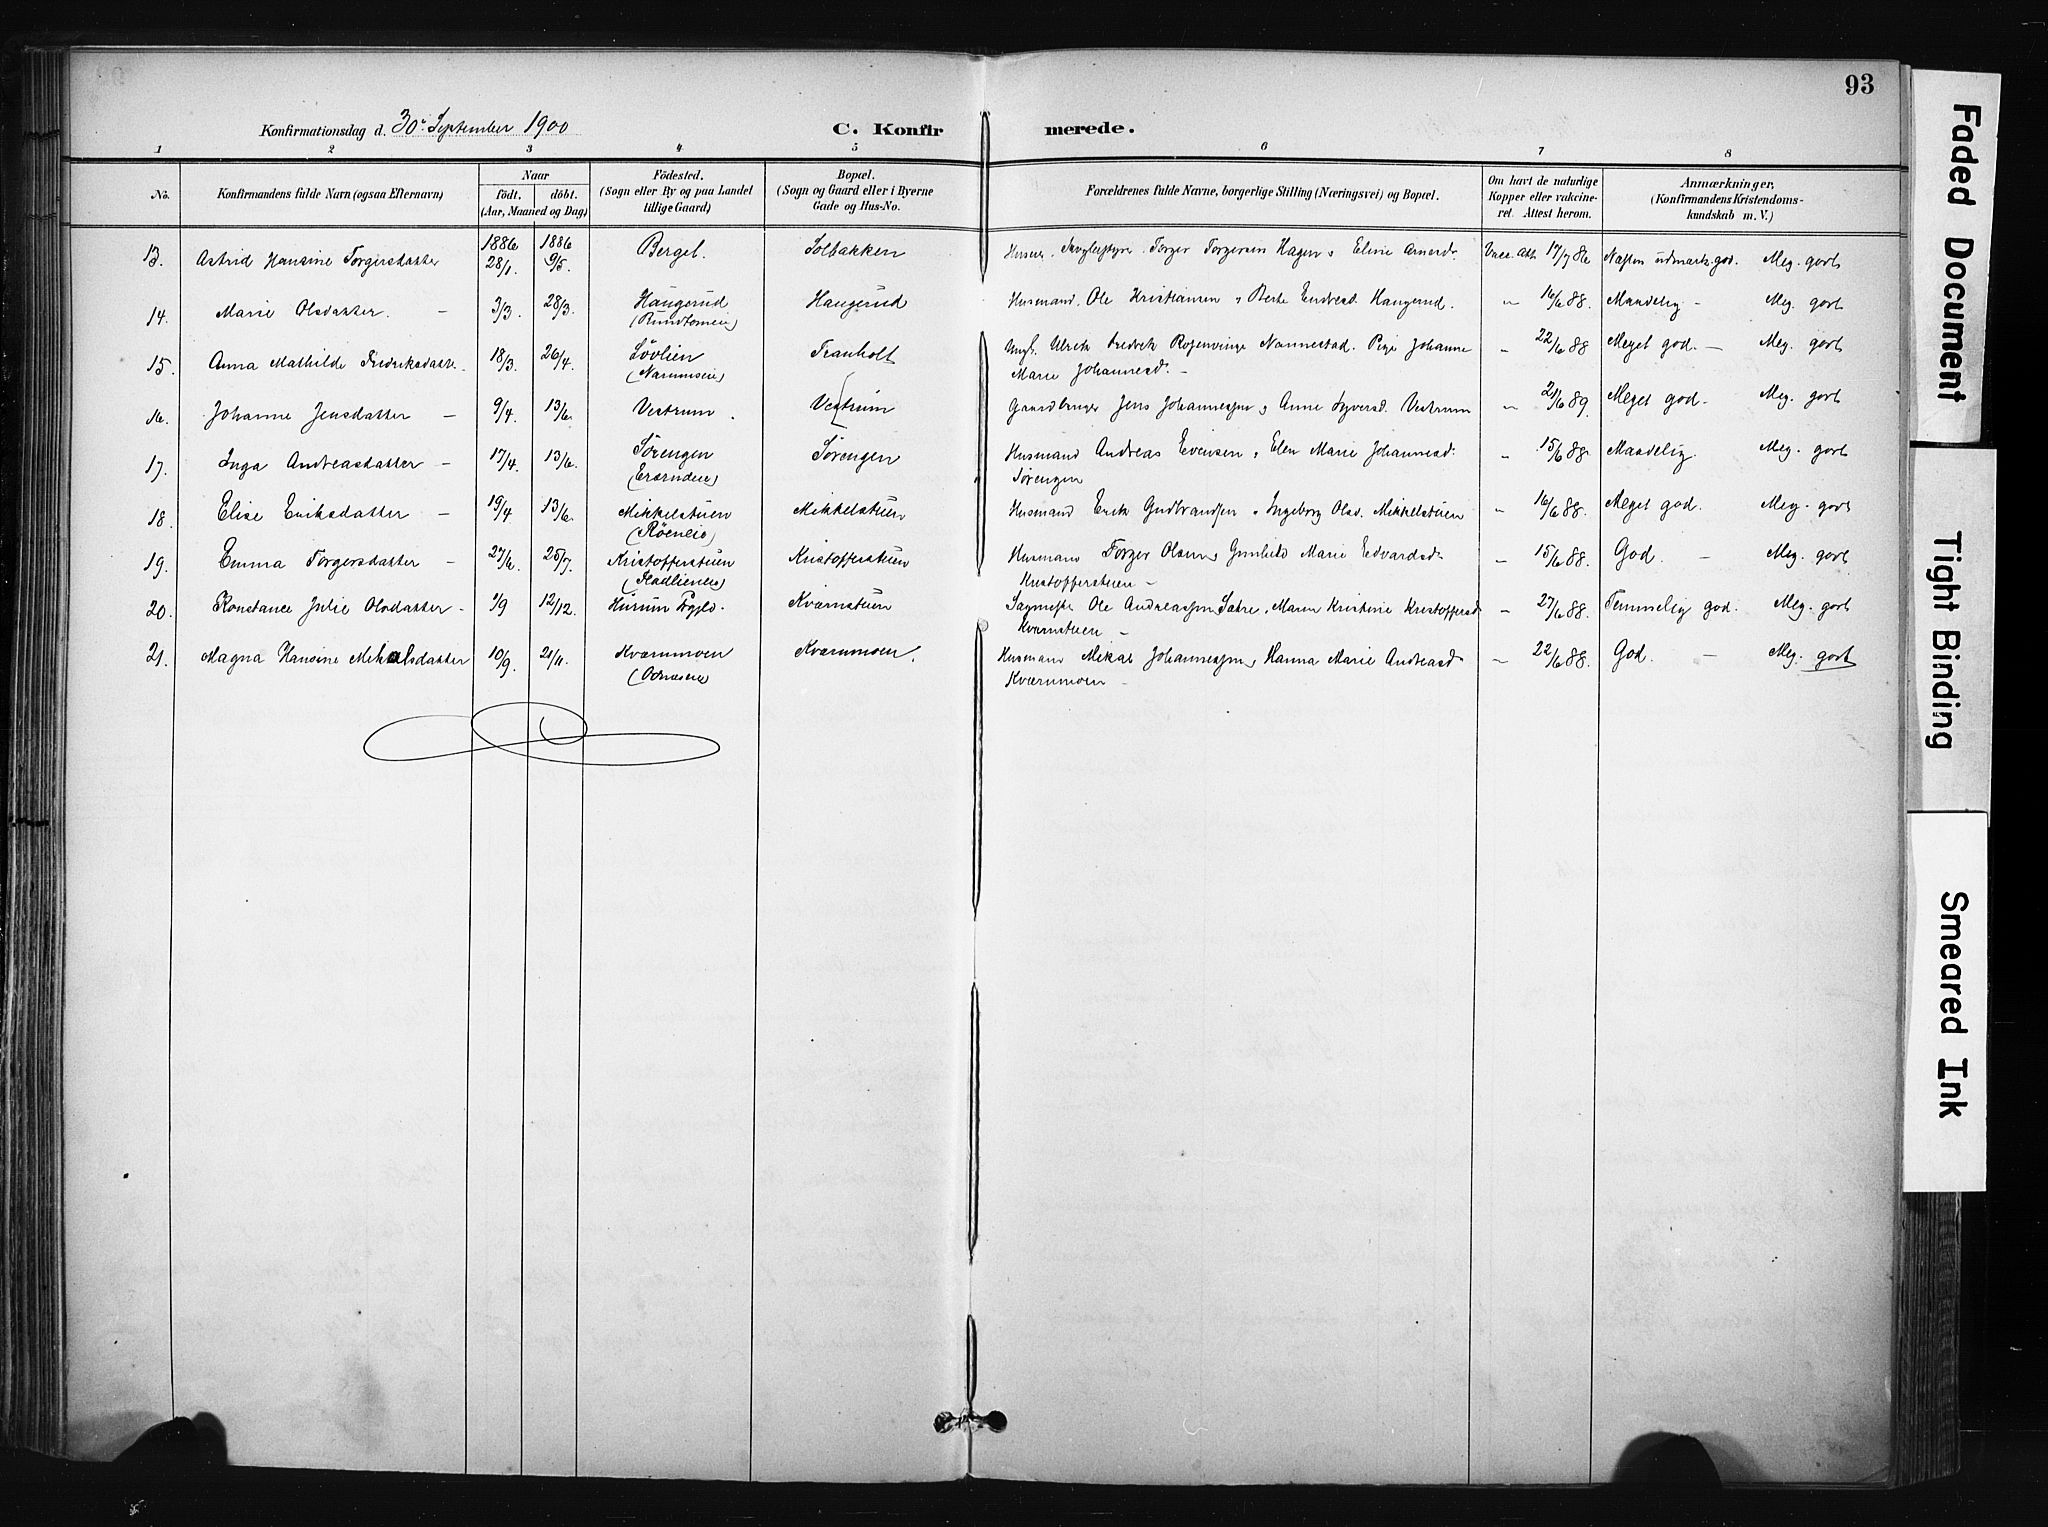 93
Konfirmationsdag d. 30te September 1900
C. Konfirmerede.
1 2 3 4 5 6 7 8
No.
Konfirmandens fulde Navn (ogsaa Efternavn)
Naar
født. døbt.
(Aar, Maaned og Dag)
Fødested.
(Sogn eller By og paa Landet
tillige Gaard)
Bopæl.
(Sogn og Gaard eller i Byerne
Gade og Hus-No.
Forældrenes fulde Navne, borgerlige Stilling (Næringsvei) og Bopæl.
Om havt de naturlige
Kopper eller vakcine-
ret. Attest herom.
Anmærkninger,
(Konfirmandens Kristendoms-
kundskab m. V.)
13. Astrid Hansine Torgersdatter 1886 28/1 1886 9/5. Bergel. Solbakken Torger Torgersen Hagen & Eline Arnesd. Vacc. Att. 17/7 86 Næsten udmærk. god. Meg. godt
14. Marie Olsdatter. – 3/3. 28/3. Haugerud Haugerud Husmand. Ole Kristiansen & Berte Endresd. Haugerud. " 16/6 88. Maadelig – Meg. godt
15. Anna Mathilde Fredriksdatter. 18/3. 26/4. Løvlien Tranholt Ungk. Ulrik Fredrik Rosenvinge Nannestad. Pige Johanne " 22/6 88 Meget god. – Meg. godt
Marie Johannesd. –
16. Johanne Jensdatter – 9/4. 13/6. Vestrum. Vestrum Gaardbruger Jens Johannessen & Anne Syversd. Vestrum " 21/6 89. Meget god. Meg. godt
17. Inga Andreasdatter – 17/4. 13/6. Sørengen Sørengen Husmand Andreas Evensen & Elen Marie Johannesd. " 15/6 88. Maadelig. Meg. godt
Sørengen
18. Elise Eriksdatter – 19/4 13/6. Mikkelstuen Mikkelstuen Husmand Erik Gudbrandsen & Ingeborg Olsd. Mikkelstuen " 16/6 88. Meget god. Meg. godt
19. Emma Torgersdatter – 27/6. 25/7. Kristofferstuen Kristofferstuen Husmand Torger Olsen & Gunhild Marie Edvardsd. – 15/6 88. God. – Meg. godt
Kristofferstuen –
20. Konstance Julie Olsdatter – 1/9 12/12. Hurum Kværnstuen Ole Andreassen Sætre & Maren Kristine Kristoffersd. – 27/6 88. Temmelig god. Meg. godt
Kværnstuen –
21. Magna Hansine Mikalsdatter 10/9. 21/11. Kværnmoen Kværnmoen. Husmand Mikal Johannessen & Hanna Marie Andreasd. – 22/6 88. God. – Meg. godt
Kværnmoen –
Faded Document
Tight Binding
Smeared Ink